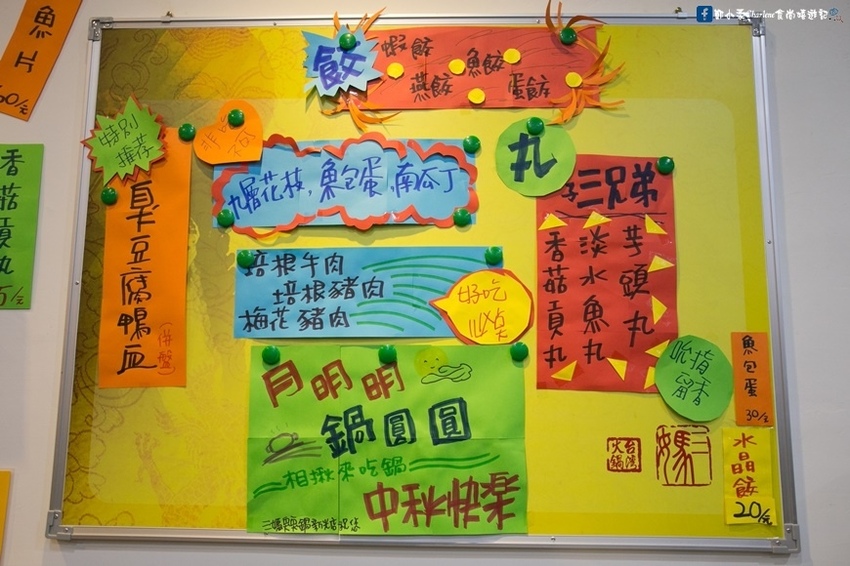 魚片
60/元
香菇貢丸
5/元
鄭小柔Charlene食尚嬉遊記
餃
蝦餃
魚餃
燕餃
蛋餃
特別
推荐
臭豆腐鴨血
(拼盤)
非吃不可
九層花枝,魚包蛋,南瓜丁
丸
三兄弟
芋頭丸
淡水魚丸
香菇貢丸
培根牛肉
培根豬肉
梅花豬肉
好吃
月明明
鍋圓圓
相揪來吃鍋
中秋快樂
吮指
留香
魚包蛋
30/元
水晶餃
20/元
台灣
火鍋